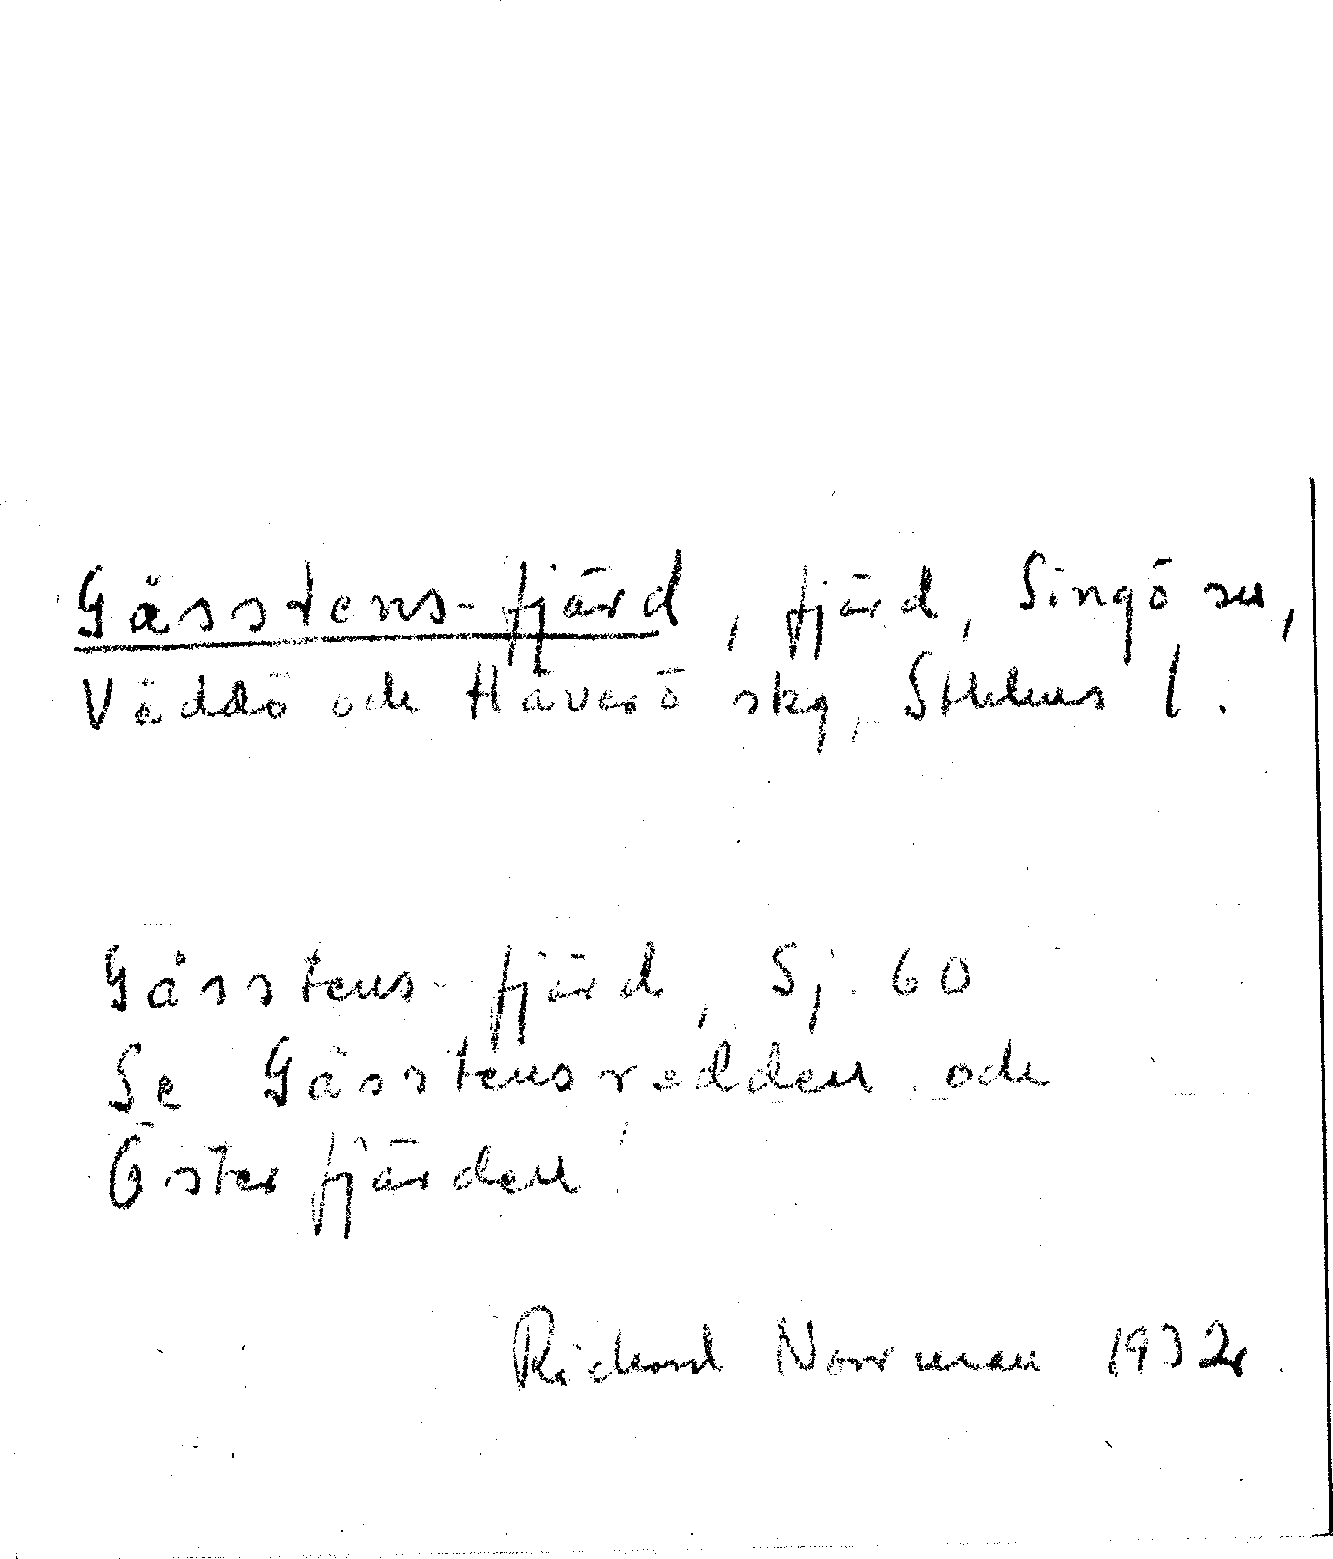 Gåsstens-fjärd, fjärd, Singö sn,
Väddö och Häverö skg, Sthlms l.
Gåsstens-fjärd, Sj. 60
Se Gåsstensredden och
Österfjärden!
Rickard Norrman 1932